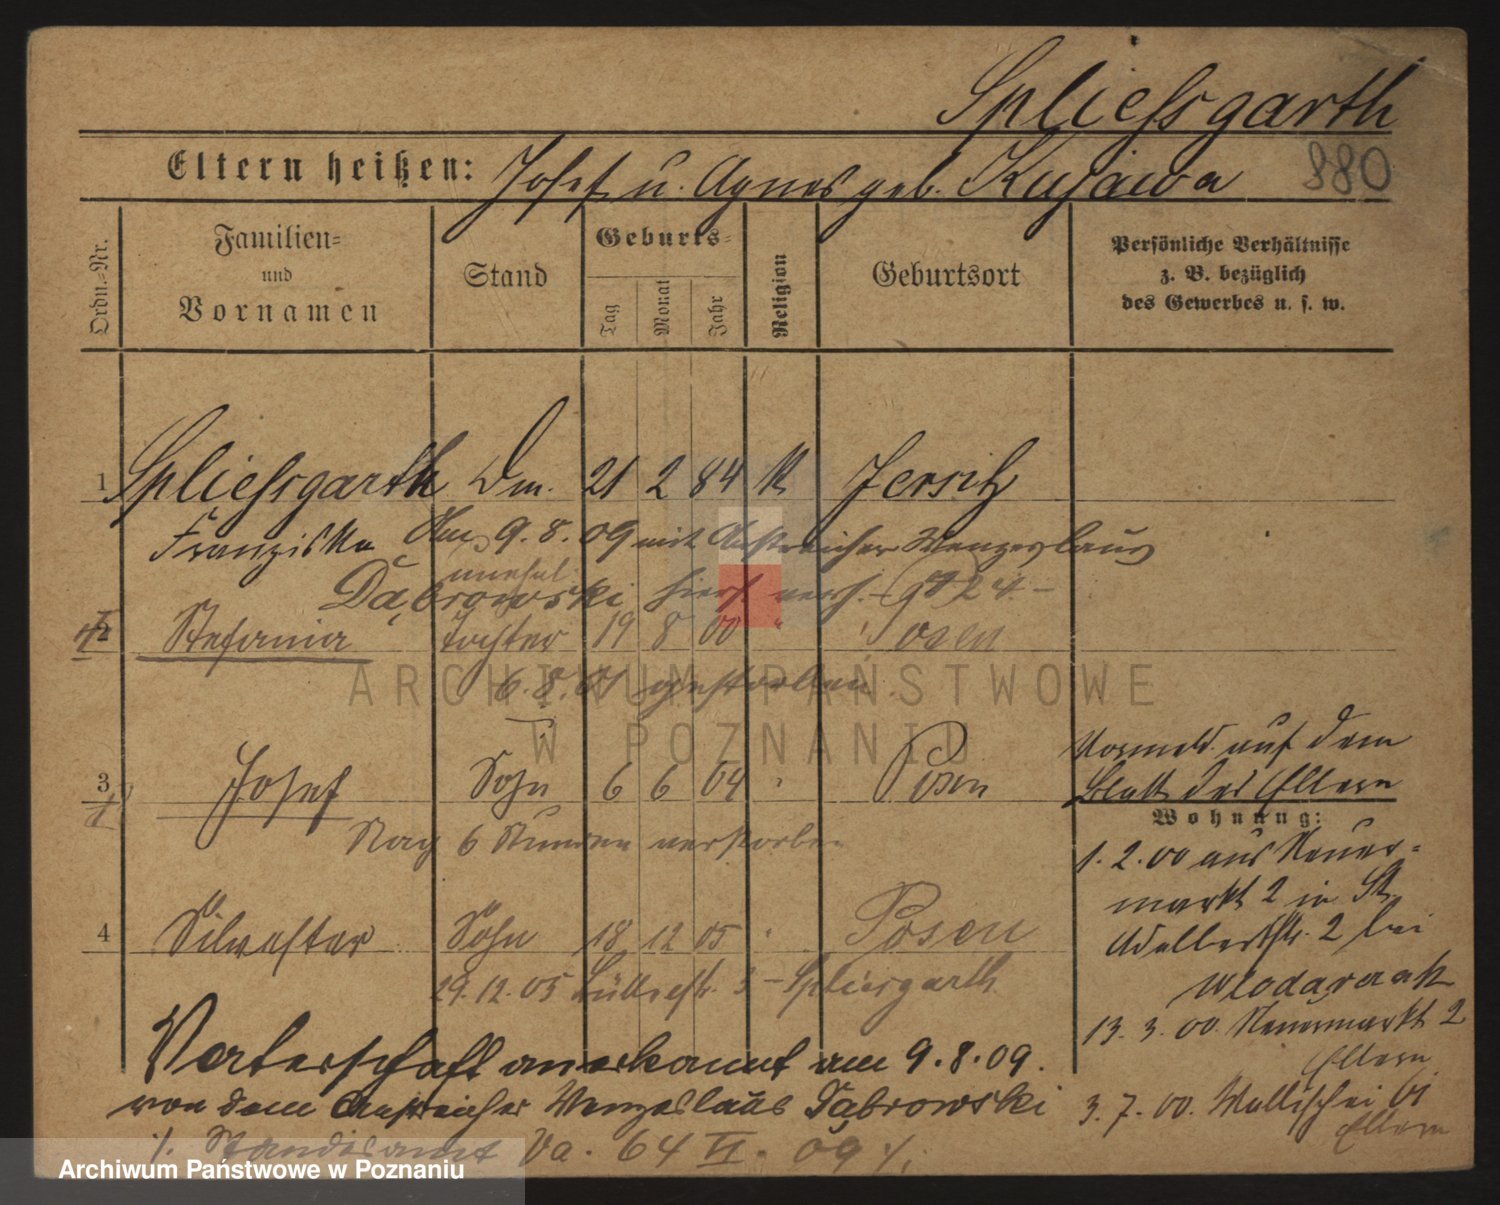 Spliessgarth
Eltern heißen: Josef u. Agnes geb. Kujawa
880
Ordn.-Nr.
Familien-
und
Vornamen
Stand
Geburts-
Tag
Monat
Jahr
Religion
Geburtsort
Persönliche Verhältnisse
z. B. bezüglich
des Gewerbes u. s. w.
1 Spliessgarth Dm. 21 2 84 K Jersitz
Franziska Am 9.8.09 mit Anstreicher Wenzeslaus
Dąbrowski hier verh.
unehel.
2 Stefania Tochter 19 8 00 " Posen
6.8.01 gestorben.
3 Josef Sohn 6 6 04 " Posen
Nach 6 Stunden verstorben
4 Silvester Sohn 18 12 05 " Posen
29.12.05 3 - Spliesgarth
Vaterschaft anerkannt am 9.8.09.
von dem Anstreicher Wenzeslaus Dąbrowski
/. Standesamt Va. 64 VI. 09 /.
Vormeld. auf dem
Blatt der Eltern
Wohnung:
1.2.00 aus Neuer-
markt 2 in St.
Adalbertstr. 2 bei
Wlodarczak
13.3.00. Neuermarkt 2
Eltern
3.7.00. Wallischei 61
Eltern
ARCHIWUM PAŃSTWOWE
W POZNANIU
Archiwum Państwowe w Poznaniu